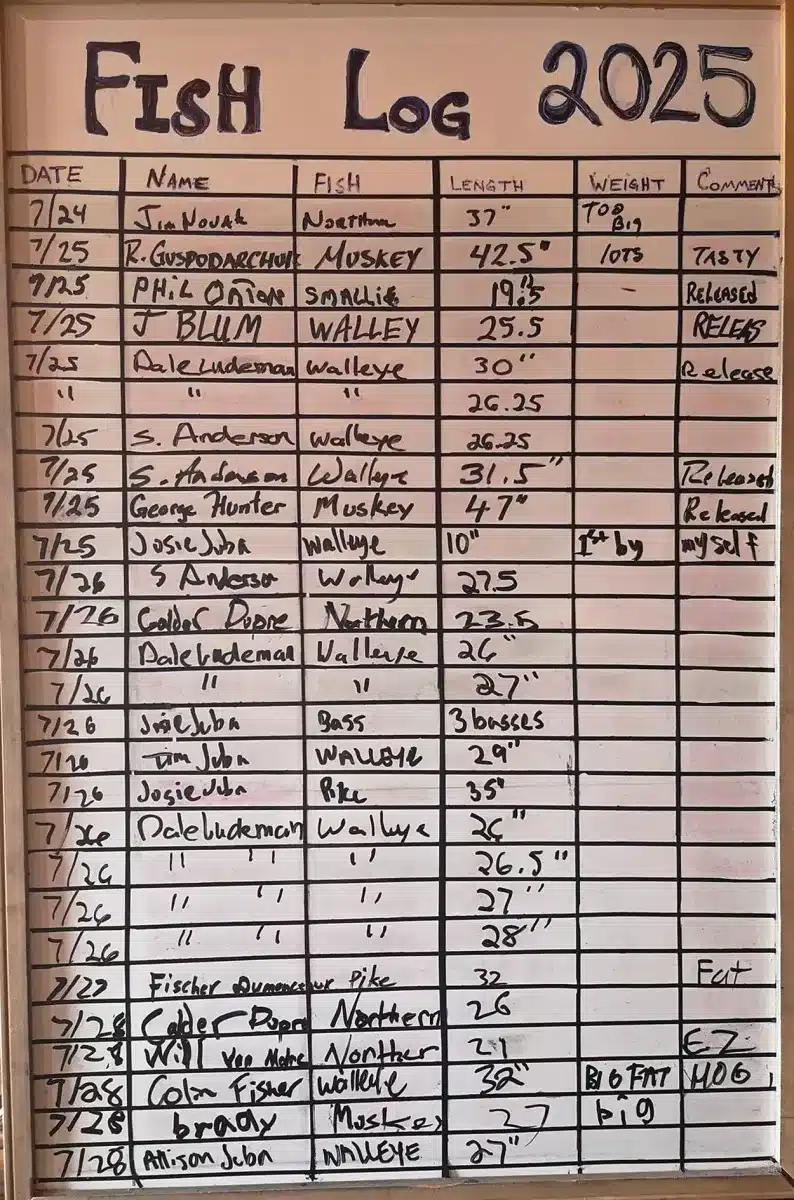 FISH LOG 2025
DATE NAME FISH LENGTH WEIGHT COMMENTS
7/24 Jim Novak Northern 37" TOO BIG
7/25 R. GUSPODARCHUK MUSKEY 42.5" lOTS TASTY
7/25 PHIL SMALLIE 19.5" - RELEASED
7/25 J BLUM WALLEY 25.5 RELEAS
7/25 Dale Ludeman Walleye 30" Release
" " " 26.25
7/25 S. Anderson walleye 26.25
7/25 S. Anderson Walleye 31.5" Released
7/25 George Hunter Muskey 47" Released
7/25 Josie Juba walleye 10" 1st by my self
7/26 S Anderson Walleye 27.5
7/26 Calder Dupre Northern 23.5
7/26 Dale Ludeman Walleye 26"
7/26 " " 27"
7/26 Josie Juba Bass 3 basses
7/26 Tim Juba WALLEYE 29"
7/26 Josie Juba Pike 35"
7/26 Dale Ludeman Walleye 26"
7/26 " " " 26.5"
7/26 " " " 27"
7/26 " " " 28"
7/27 Fischer Pike 32 Fat
7/28 Calder Dupre Northern 26
7/28 Will Van Norther 21 EZ
7/28 Colin Fisher walleye 32" BIG FAT HOG
7/28 brady Muskey 27 big
7/28 Allison Juba WALLEYE 27"